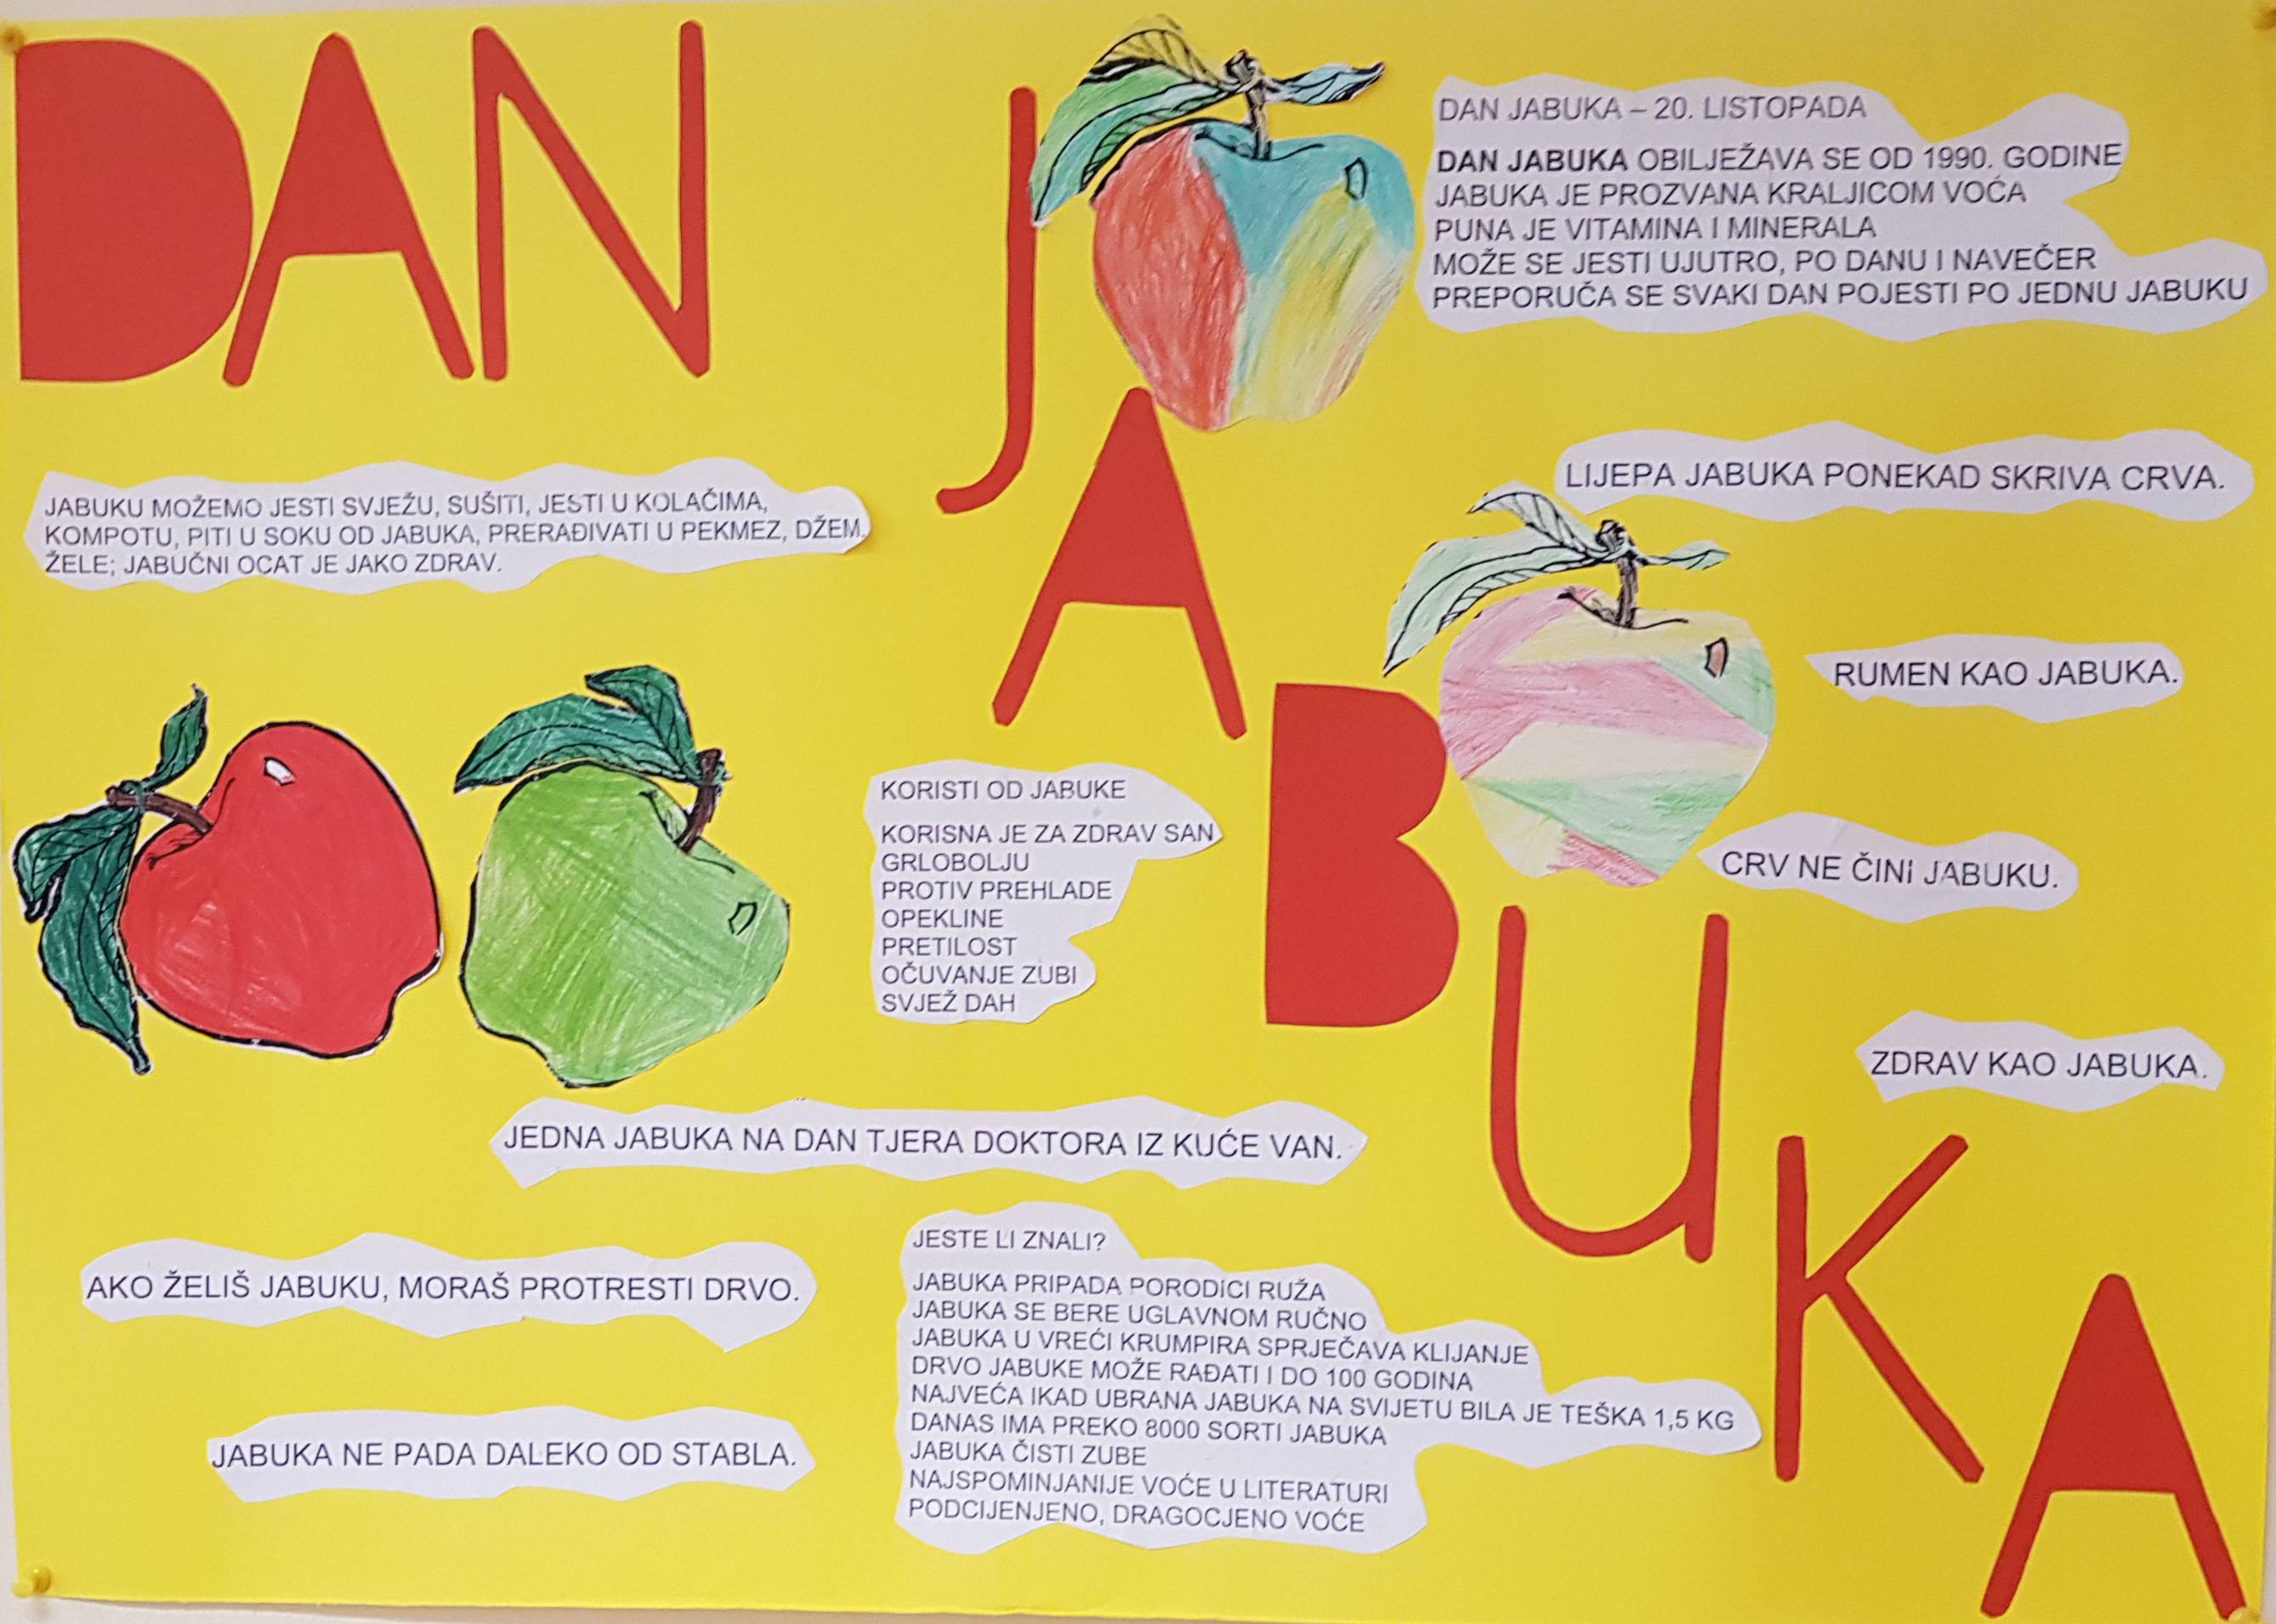 DAN
JABUKA
DAN JABUKA – 20. LISTOPADA
DAN JABUKA OBILJEŽAVA SE OD 1990. GODINE
JABUKA JE PROZVANA KRALJICOM VOĆA
PUNA JE VITAMINA I MINERALA
MOŽE SE JESTI UJUTRO, PO DANU I NAVEČER
PREPORUČA SE SVAKI DAN POJESTI PO JEDNU JABUKU
JABUKU MOŽEMO JESTI SVJEŽU, SUŠITI, JESTI U KOLAČIMA,
KOMPOTU, PITI U SOKU OD JABUKA, PRERAĐIVATI U PEKMEZ, DŽEM,
ŽELE; JABUČNI OCAT JE JAKO ZDRAV.
LIJEPA JABUKA PONEKAD SKRIVA CRVA.
RUMEN KAO JABUKA.
CRV NE ČINI JABUKU.
ZDRAV KAO JABUKA.
KORISTI OD JABUKE
KORISNA JE ZA ZDRAV SAN
GRLOBOLJU
PROTIV PREHLADE
OPEKLINE
PRETILOST
OČUVANJE ZUBI
SVJEŽ DAH
JEDNA JABUKA NA DAN TJERA DOKTORA IZ KUĆE VAN.
AKO ŽELIŠ JABUKU, MORAŠ PROTRESTI DRVO.
JABUKA NE PADA DALEKO OD STABLA.
JESTE LI ZNALI?
JABUKA PRIPADA PORODICI RUŽA
JABUKA SE BERE UGLAVNOM RUČNO
JABUKA U VREĆI KRUMPIRA SPRJEČAVA KLIJANJE
DRVO JABUKE MOŽE RAĐATI I DO 100 GODINA
NAJVEĆA IKAD UBRANA JABUKA NA SVIJETU BILA JE TEŠKA 1,5 KG
DANAS IMA PREKO 8000 SORTI JABUKA
JABUKA ČISTI ZUBE
NAJSPOMINJANIJE VOĆE U LITERATURI
PODCIJENJENO, DRAGOCJENO VOĆE